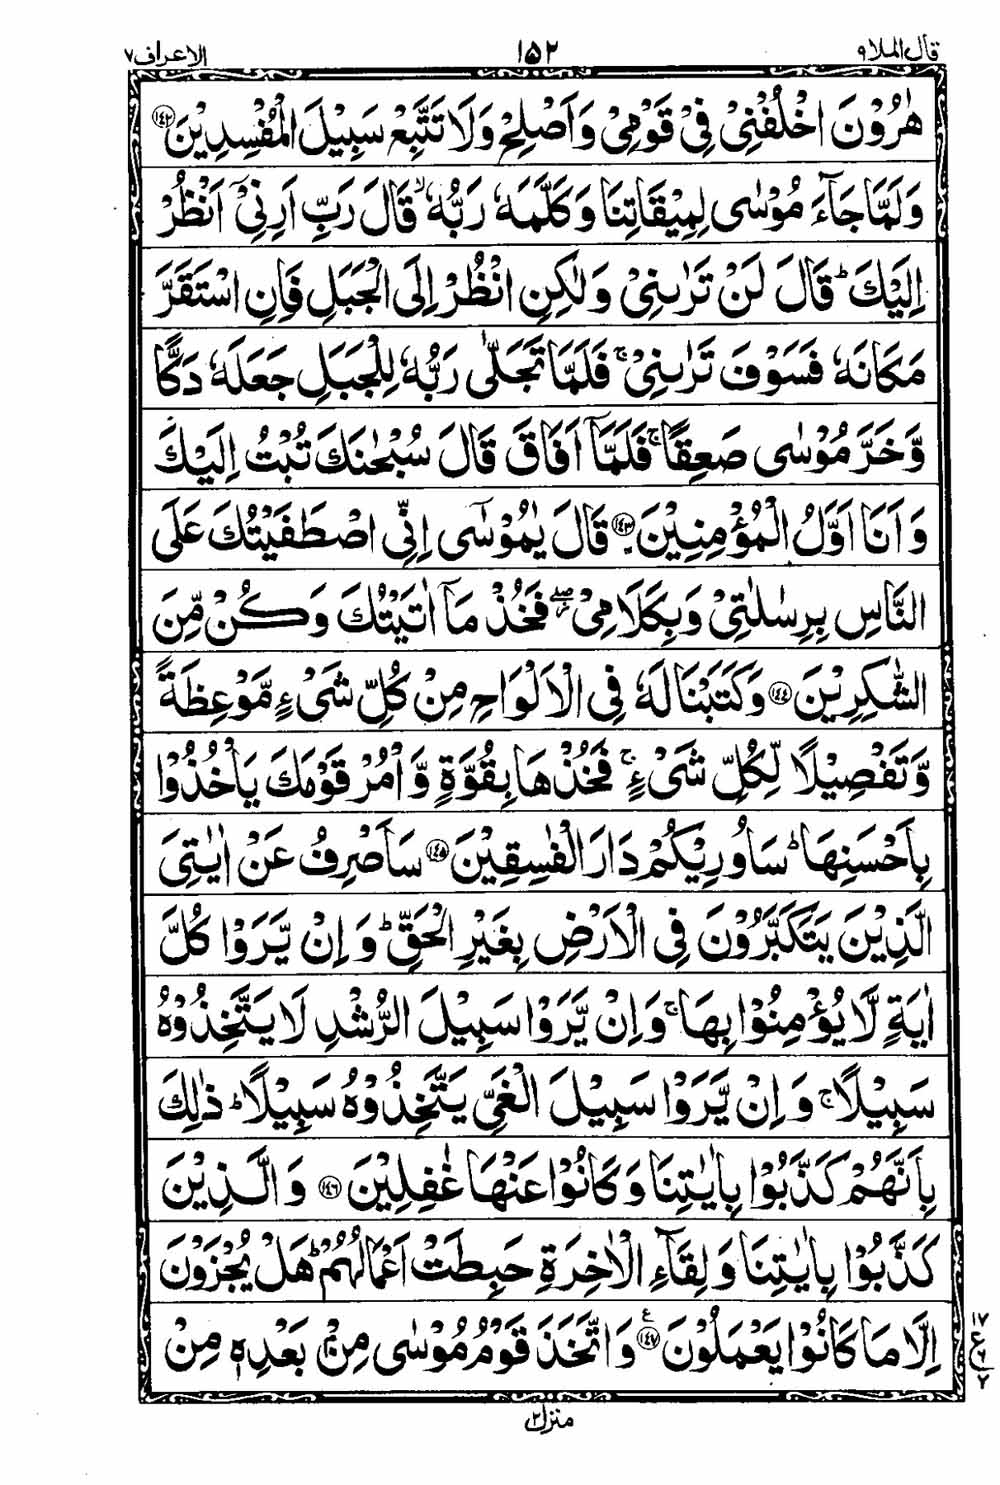 قال الملا ٩
١٥٢
الاعراف ٧
هٰرُوْنَ اخْلُفْنِیْ فِیْ قَوْمِیْ وَاَصْلِحْ وَلَا تَتَّبِعْ سَبِیْلَ الْمُفْسِدِیْنَ ۝١٤٢
وَلَمَّا جَآءَ مُوْسٰی لِمِیْقَاتِنَا وَكَلَّمَهٗ رَبُّهٗ ۙ قَالَ رَبِّ اَرِنِیْۤ اَنْظُرْ
اِلَیْكَ ؕ قَالَ لَنْ تَرٰىنِیْ وَلٰكِنِ انْظُرْ اِلَی الْجَبَلِ فَاِنِ اسْتَقَرَّ
مَكَانَهٗ فَسَوْفَ تَرٰىنِیْ ۚ فَلَمَّا تَجَلّٰی رَبُّهٗ لِلْجَبَلِ جَعَلَهٗ دَكًّا
وَّخَرَّ مُوْسٰی صَعِقًا ۚ فَلَمَّاۤ اَفَاقَ قَالَ سُبْحٰنَكَ تُبْتُ اِلَیْكَ
وَاَنَا اَوَّلُ الْمُؤْمِنِیْنَ ۝١٤٣ قَالَ یٰمُوْسٰۤی اِنِّی اصْطَفَیْتُكَ عَلَی
النَّاسِ بِرِسٰلٰتِیْ وَبِكَلَامِیْ ۖ فَخُذْ مَاۤ اٰتَیْتُكَ وَكُنْ مِّنَ
الشّٰكِرِیْنَ ۝١٤٤ وَكَتَبْنَا لَهٗ فِی الْاَلْوَاحِ مِنْ كُلِّ شَیْءٍ مَّوْعِظَةً
وَّتَفْصِیْلًا لِّكُلِّ شَیْءٍ ۚ فَخُذْهَا بِقُوَّةٍ وَّاْمُرْ قَوْمَكَ یَاْخُذُوْا
بِاَحْسَنِهَا ؕ سَاُورِیْكُمْ دَارَ الْفٰسِقِیْنَ ۝١٤٥ سَاَصْرِفُ عَنْ اٰیٰتِیَ
الَّذِیْنَ یَتَكَبَّرُوْنَ فِی الْاَرْضِ بِغَیْرِ الْحَقِّ ؕ وَاِنْ یَّرَوْا كُلَّ
اٰیَةٍ لَّا یُؤْمِنُوْا بِهَا ۚ وَاِنْ یَّرَوْا سَبِیْلَ الرُّشْدِ لَا یَتَّخِذُوْهُ
سَبِیْلًا ۚ وَاِنْ یَّرَوْا سَبِیْلَ الْغَیِّ یَتَّخِذُوْهُ سَبِیْلًا ؕ ذٰلِكَ
بِاَنَّهُمْ كَذَّبُوْا بِاٰیٰتِنَا وَكَانُوْا عَنْهَا غٰفِلِیْنَ ۝١٤٦ وَالَّذِیْنَ
كَذَّبُوْا بِاٰیٰتِنَا وَلِقَآءِ الْاٰخِرَةِ حَبِطَتْ اَعْمَالُهُمْ ؕ هَلْ یُجْزَوْنَ
اِلَّا مَا كَانُوْا یَعْمَلُوْنَ ۝١٤٧ ع وَاتَّخَذَ قَوْمُ مُوْسٰی مِنْۢ بَعْدِهٖ مِنْ
١٧
ع ٦
٧
منزل ٢